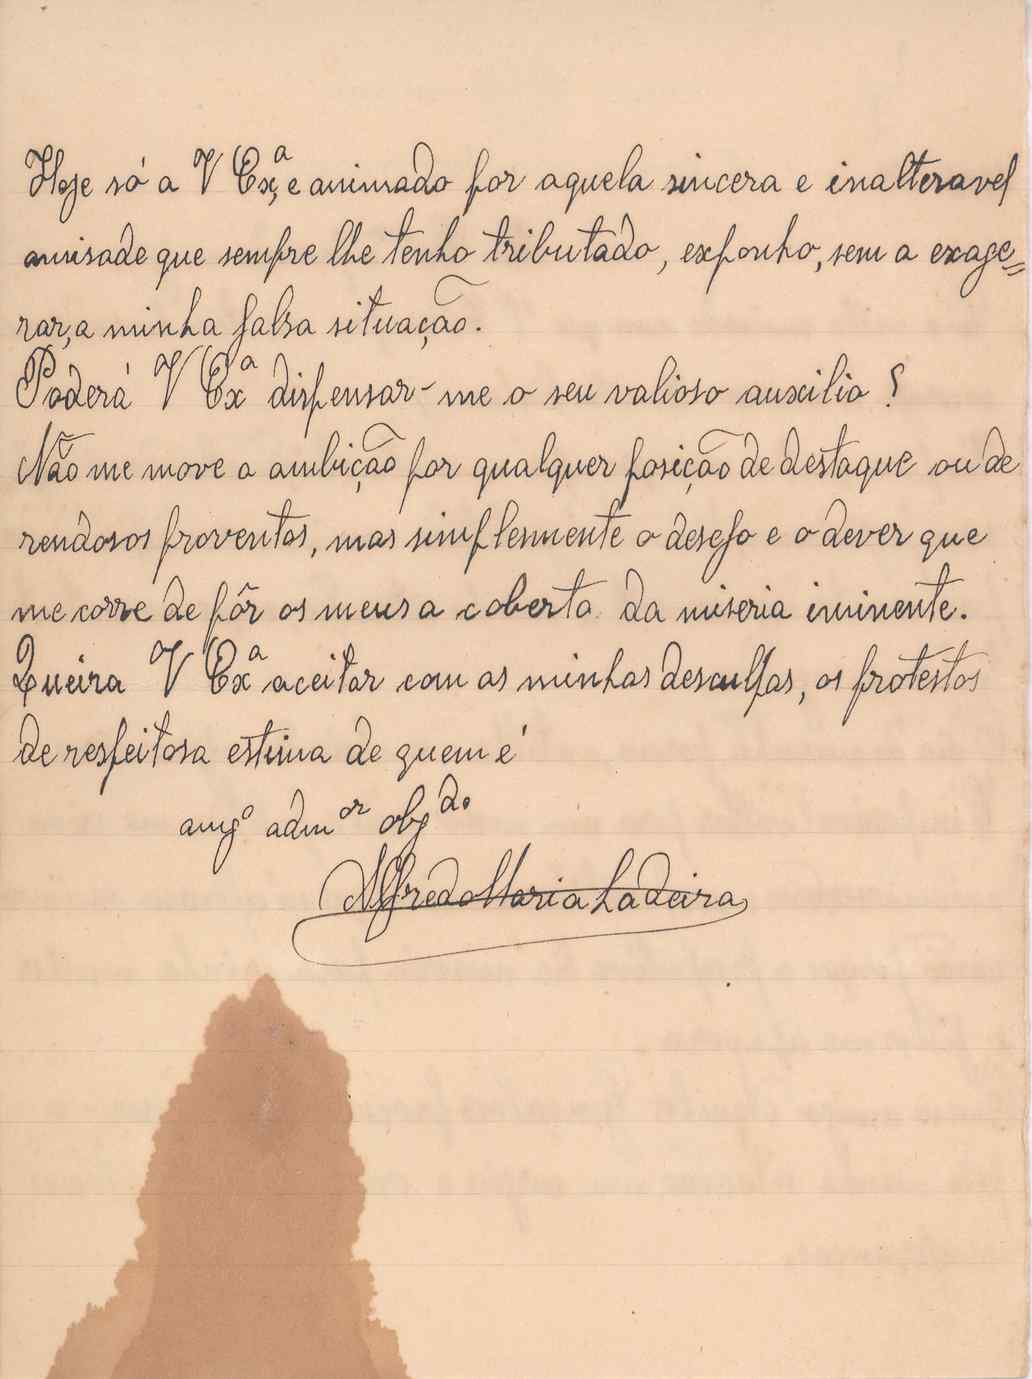 Hoje só a V Exª, e animado por aquela sincera e inalteravel
amisade que sempre lhe tenho tributado, exponho, sem a exage=
rar, a minha falsa situação.
Poderá V Exª dispensar-me o seu valioso auxilio?
Não me move a ambição por qualquer posição de destaque ou de
rendosos proventos, mas simplesmente o desejo e o dever que
me corre de pôr os meus a coberto da miseria iminente.
Queira V Exª aceitar com as minhas desculpas, os protestos
de respeitosa estima de quem é
amgº admᵒʳ obgᵈº
Alfredo Maria Ladeira